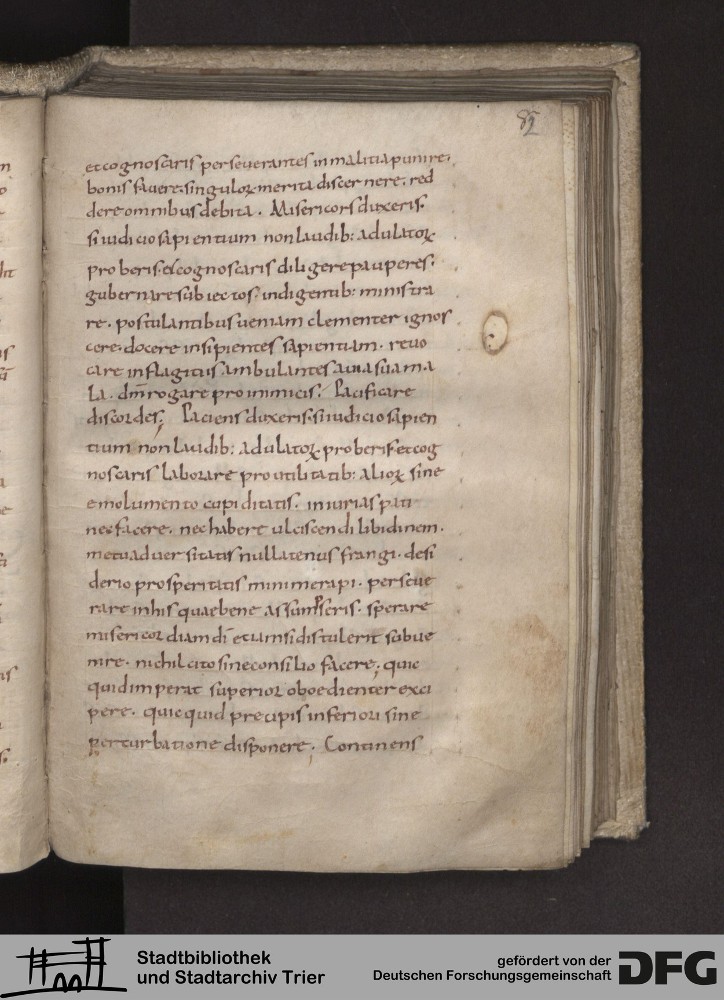 82
et cognoscaris perseverantes in malitia punire;
bonis favere; singuloꝝ merita discernere; red
dere omnibus debita. Misericors duxeris.
si iudicio sapientium non laudib; adulatoꝝ
proberis. et cognoscaris diligere pauperes.
gubernare subiectos. indigentib; ministra
re. postulantibus veniam clementer ignos
cere. docere insipientes sapientiam. revo
care in flagitiis ambulantes a via sua ma
la. dm̄ rogare pro inimicis. Pacificare
discordes; Paciens duxeris. si iudicio sapien
tium non laudib; adulatoꝝ proberis. et cog
noscaris laborare pro utilitatib; alioꝝ sine
emolumento cupiditatis. iniurias pati
nec facere. nec habere ulciscendi libidinem.
metu adversitatis nullatenus frangi. desi
derio prosperitatis minime rapi. perseve
rare in his quae bene assumpseris. sperare
misericordiam dī etiam si distulerit subve
nire. nichil cito sine consilio facere; quic
quid imperat superior oboedienter exci
pere. quicquid precipis inferiori sine
perturbatione disponere; Continens
Stadtbibliothek
und Stadtarchiv Trier
gefördert von der
Deutschen Forschungsgemeinschaft
DFG